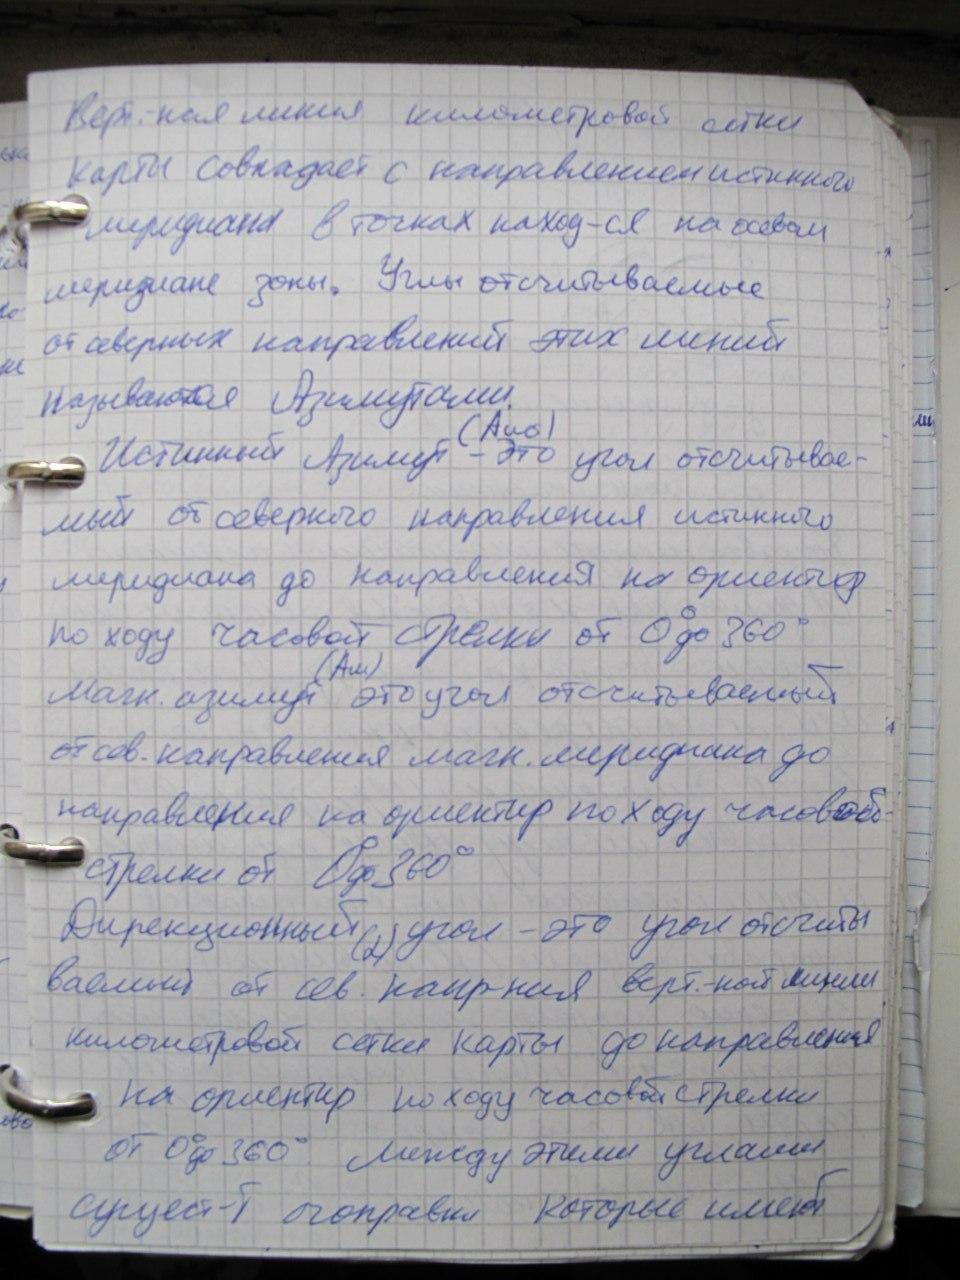 Верт.-ная линия километровой сетки
карты совпадает с направлением истинного
меридиана в точках наход-ся на осевом
меридиане зоны. Углы отсчитываемые
от северных направлений этих линий
называются Азимутами.
(Аио)
Истинный Азимут - это угол отсчитывае-
мый от северного направления истинного
меридиана до направления на ориентир
по ходу часовой стрелки от 0° до 360°
(Ам)
Магн. азимут это угол отсчитываемый
от сев. направления магн. меридиана до
направления на ориентир по ходу часовой
стрелки от 0° до 360°
Дирекционный (α) угол - это угол отсчиты
ваемый от сев. напр-ния верт.-ной линии
километровой сетки карты до направления
на ориентир по ходу часовой стрелки
от 0° до 360°. Между этими углами
сущест-т поправки которые имеют